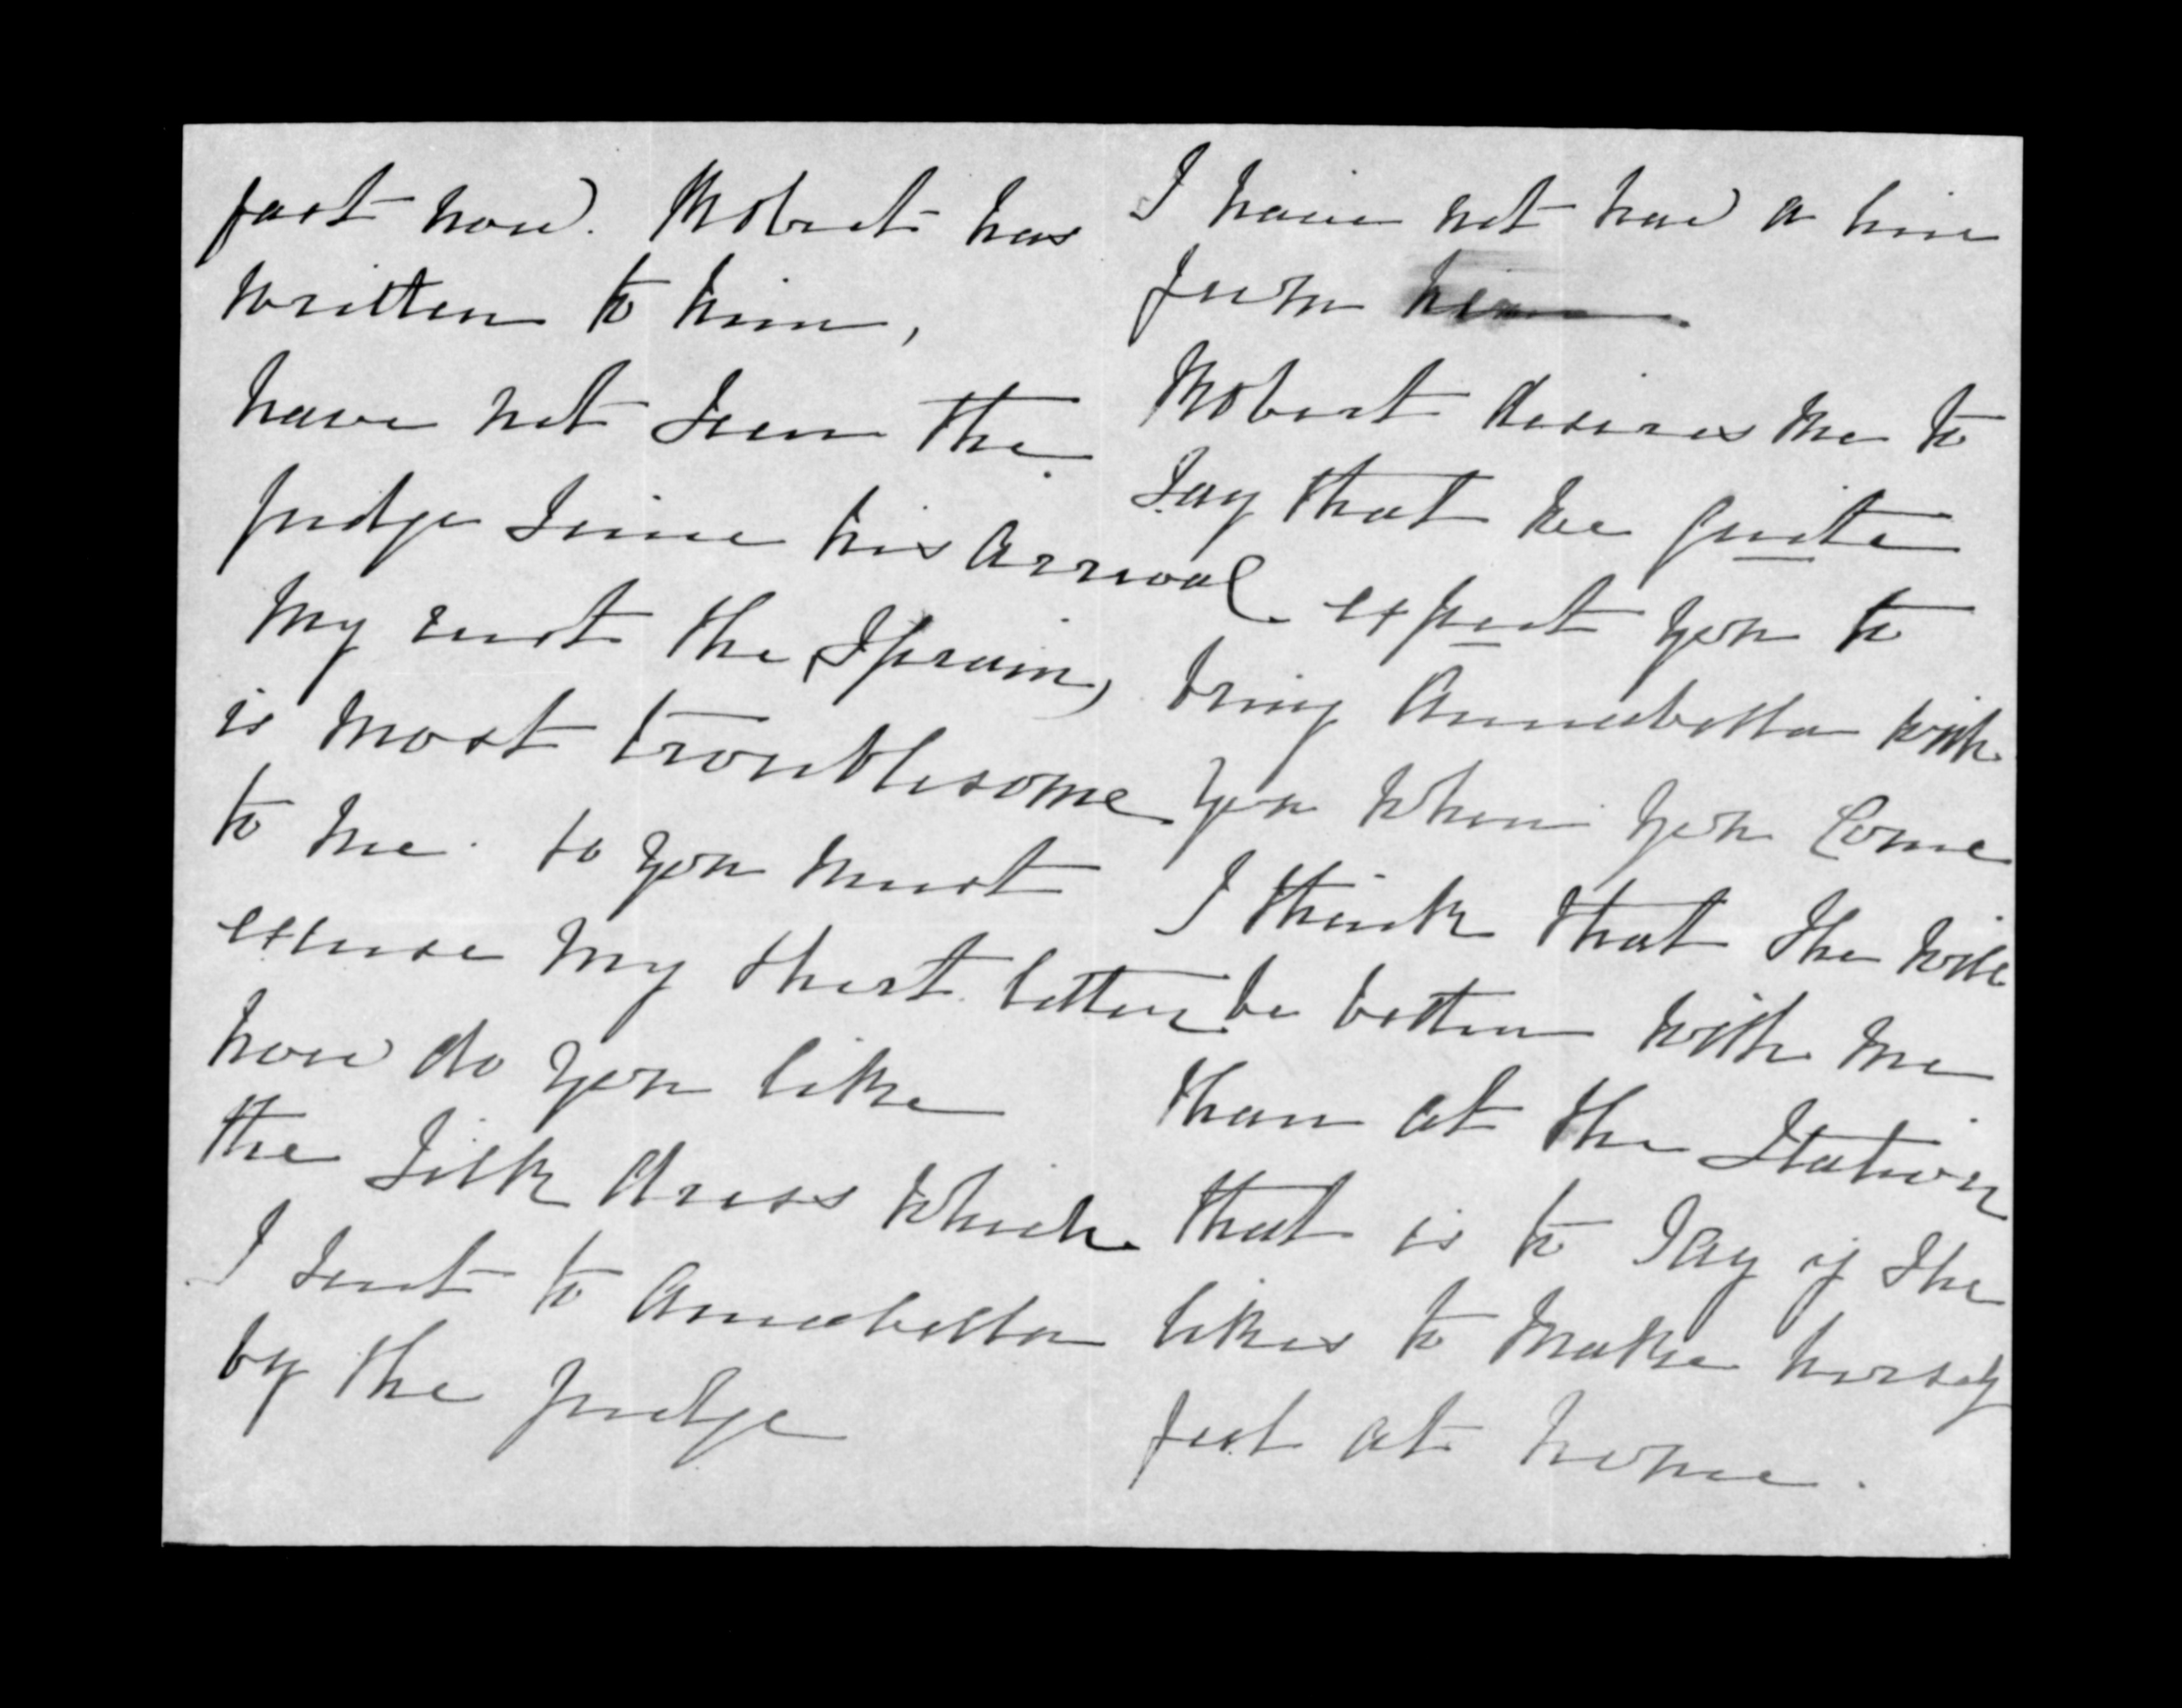 fast now. Robert has
written to him,
have not seen the
judge since his arrival
My rist the sprain,
is most troublesome
to me. so you must
excuse my short letter
how do you like
the silk dress which
I sent to Annabella
by the judge
I have not had a line
from him
Robert desires me to
say that he quite
expect you to
bring Annabella with
you when you come
I think that she will
be better with me
than at the Station
that is to say if she
likes to make herself
feel at home.